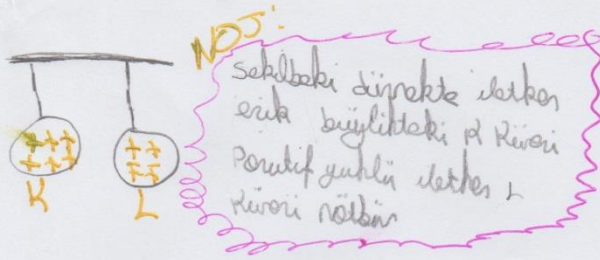 NOT:
Şekildeki düzenekte iletken
eşit büyüklükteki K Küresi
Pozitif yüklü iletken L
Küresi nötrdür
K L